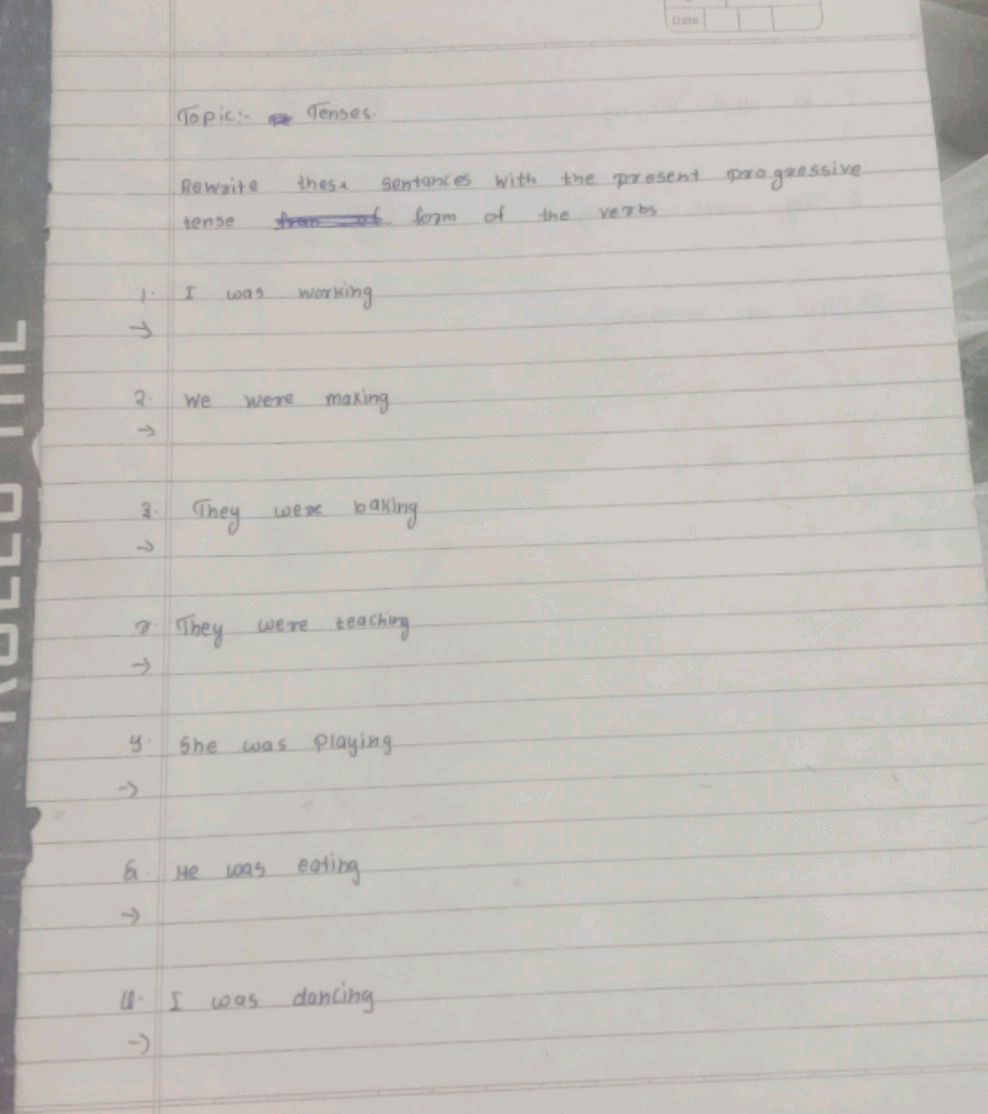 Date
Topic:- Tenses.
Rewrite these sentances with the present progressive
tense form of the verbs
1. I was working
→
2. We were making
→
3. They were baking
→
They were teaching
→
y. She was playing
→
6. He was eating
→
I was dancing
→